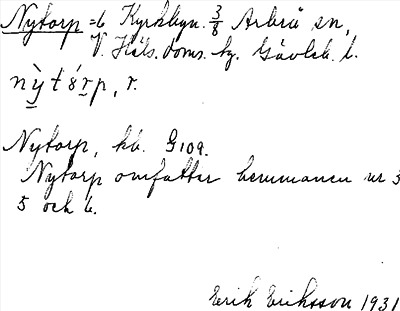 Nytorp = 6 Kyrkbyn. 3/8 Arbrå sn,
V. Häls. doms. hg. Gävleb. l.
nỳtórp, r.
Nytorp, kb. G 109.
Nytorp omfattar hemmanen nr 3
5 och 6.
Erik Eriksson 1931